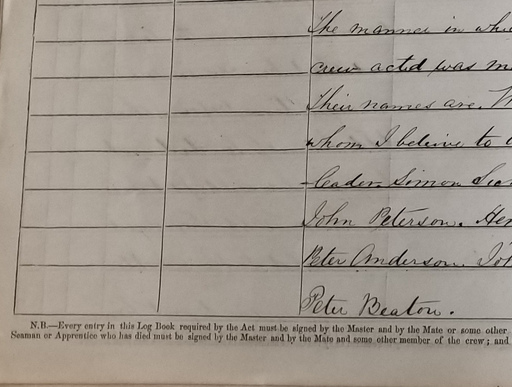 The manner in
crew acted was
Their names are.
whom I believe to
leader Simon
John Peterson.
Peter Anderson.
Peter Beaton.
N.B.—Every entry in this Log Book required by the Act must be signed by the Master and by the Mate or some other
Seaman or Apprentice who has died must be signed by the Master and by the Mate and some other member of the crew; and